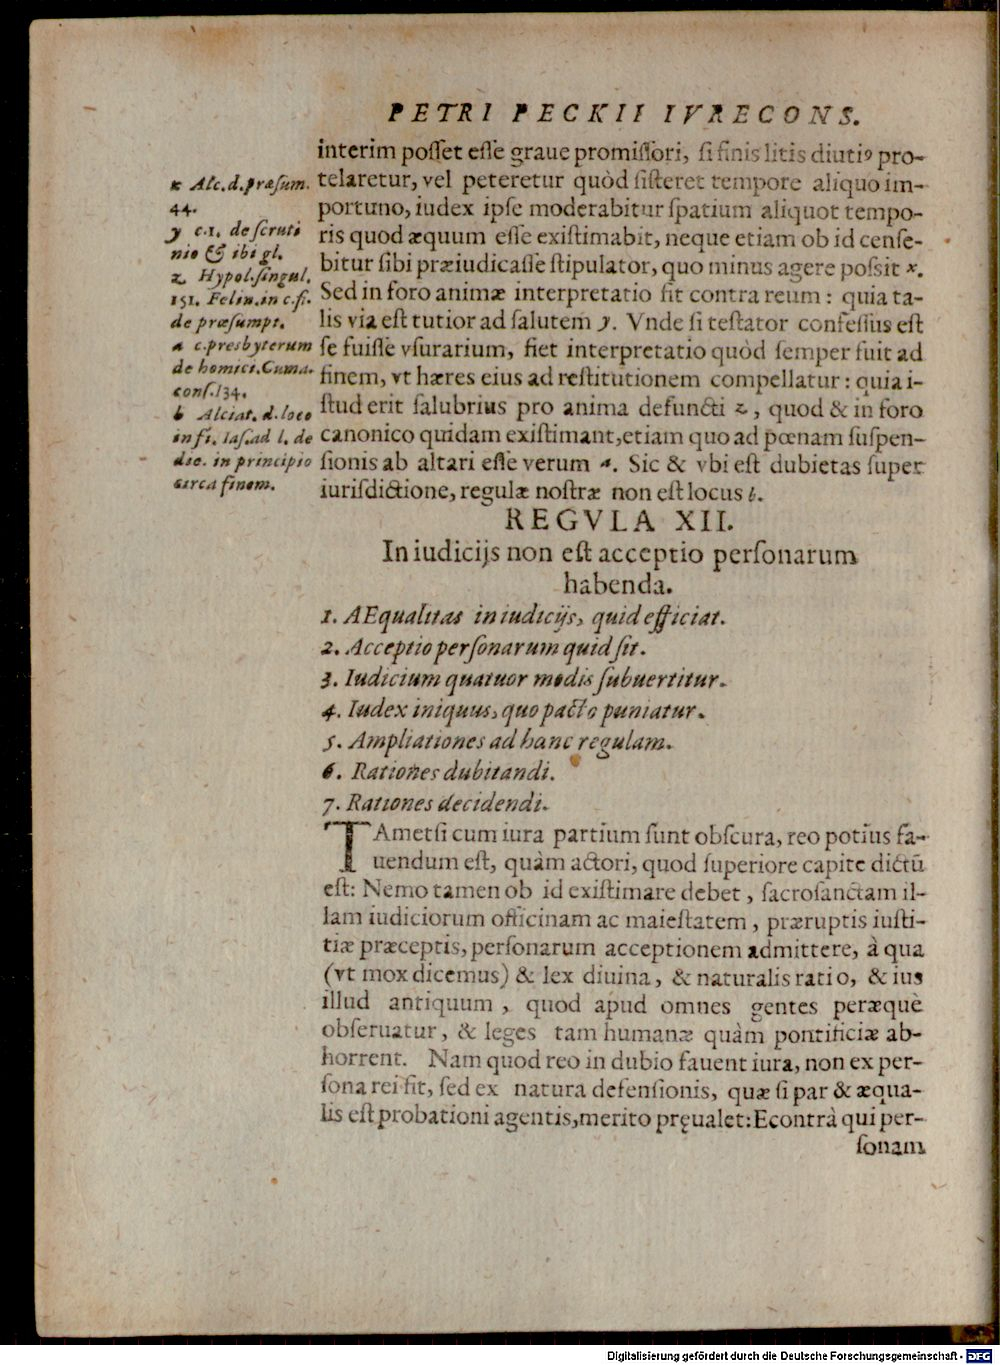 PETRI PECKII IVRECONS.
interim poſſet eſſe graue promiſſori, ſi finis litis diutiꝰ pro-
telaretur, vel peteretur quòd ſiſteret tempore aliquo im-
portuno, iudex ipſe moderabitur ſpatium aliquot tempo-
ris quod æquum eſſe exiſtimabit, neque etiam ob id cenſe-
bitur ſibi præiudicaſſe ſtipulator, quo minus agere poſsit x.
Sed in foro animæ interpretatio fit contra reum: quia ta-
lis via eſt tutior ad ſalutem y. Vnde ſi teſtator confeſſus eſt
ſe fuiſſe vſurarium, fiet interpretatio quòd ſemper fuit ad
finem, vt hæres eius ad reſtitutionem compellatur: quia i-
ſtud erit ſalubrius pro anima defuncti z, quod & in foro
canonico quidam exiſtimant, etiam quo ad pœnam ſuſpen-
ſionis ab altari eſſe verum a. Sic & vbi eſt dubietas ſuper
iurisdictione, regulæ noſtræ non eſt locus b.
x Alc. d. præſum.
44.
y c.1. de ſcruti
nio & ibi gl.
z Hypol. ſingul.
151. Felin. in c. ſi.
de præſumpt.
a c. presbyterum
de homici. Cuma.
conſ. 134.
b Alciat. d. loco
in fi. Iaſ. ad l. de
die. in principio
circa finem.
REGVLA XII.
In iudicijs non eſt acceptio perſonarum
habenda.
1. AEqualitas in iudicijs, quid efficiat.
2. Acceptio perſonarum quid ſit.
3. Iudicium quatuor modis ſubuertitur.
4. Iudex iniquus, quo pacto puniatur.
5. Ampliationes ad hanc regulam.
6. Rationes dubitandi.
7. Rationes decidendi.
TAmetſi cum iura partium ſunt obſcura, reo potius fa-
uendum eſt, quàm actori, quod ſuperiore capite dictū
eſt: Nemo tamen ob id exiſtimare debet, ſacroſanctam il-
lam iudiciorum officinam ac maieſtatem, præruptis iuſti-
tiæ præceptis, perſonarum acceptionem admittere, à qua
(vt mox dicemus) & lex diuina, & naturalis ratio, & ius
illud antiquum, quod apud omnes gentes peræquè
obſeruatur, & leges tam humanæ quàm pontificiæ ab-
horrent. Nam quod reo in dubio fauent iura, non ex per-
ſona rei fit, ſed ex natura defenſionis, quæ ſi par & æqua-
lis eſt probationi agentis, merito pręualet: Econtrà qui per-
ſonam
Digitalisierung gefördert durch die Deutsche Forschungsgemeinschaft - DFG